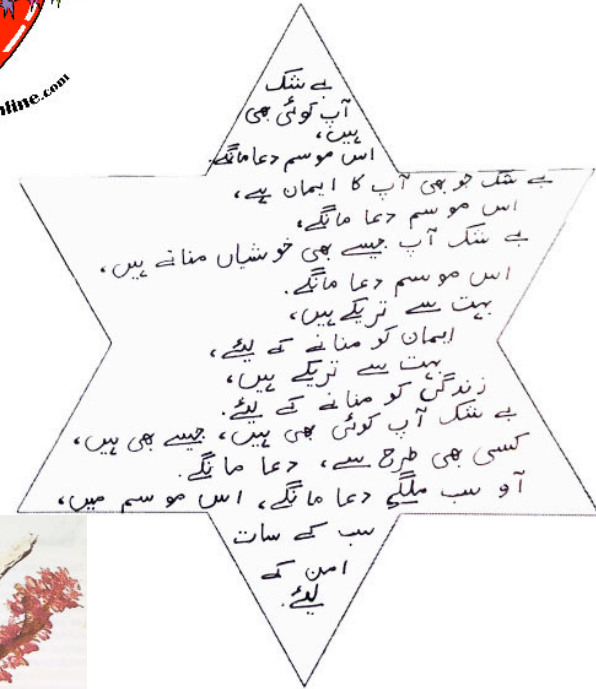 nline.com
بے شک
آپ کوئی بھی
ہیں،
اس موسم دعا مانگے.
بے شک جو بھی آپ کا ایمان ہے،
اس موسم دعا مانگے،
بے شک آپ جیسے بھی خوشیاں مناتے ہیں،
اس موسم دعا مانگے.
بہت سے تریکے ہیں،
ایمان کو منانے کے لیئے،
بہت سے تریکے ہیں،
زندگی کو منانے کے لیئے.
بے شک آپ کوئی بھی ہیں، جیسے بھی ہیں،
کسی بھی طرح سے، دعا مانگے.
آو سب ملگیے دعا مانگے، اس موسم میں،
سب کے سات
امن کے
لیئے.